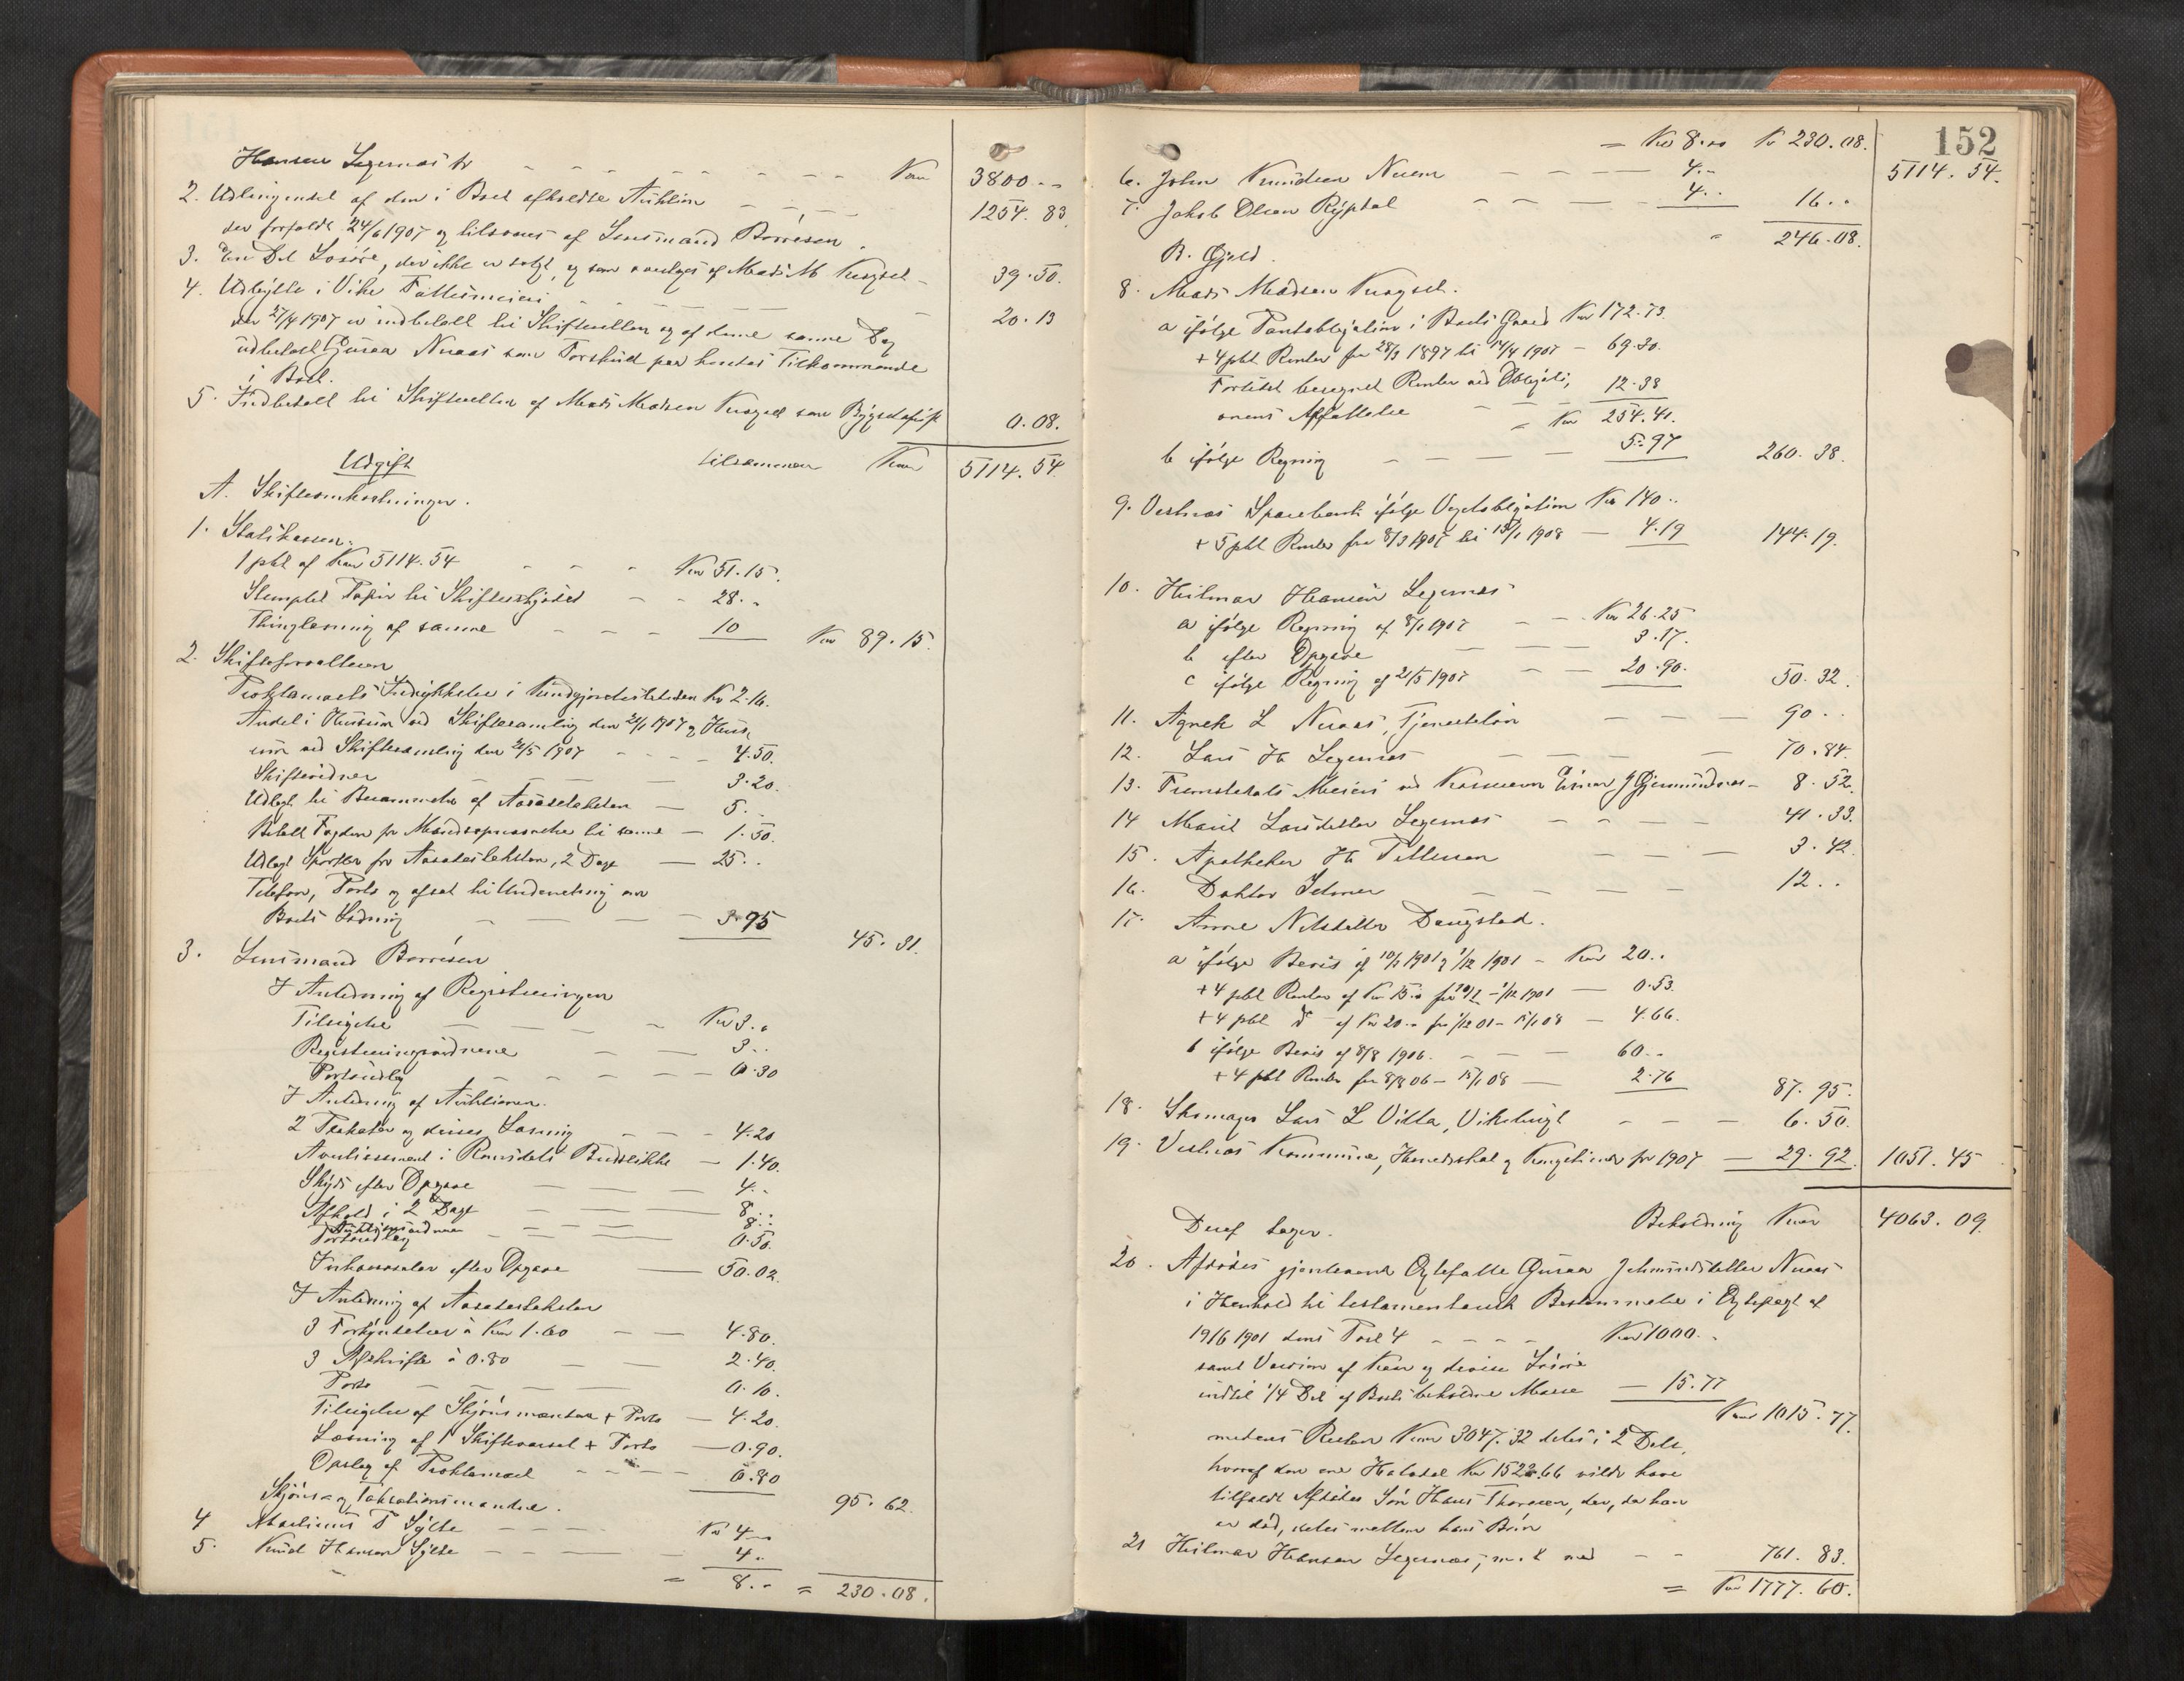 Hansen Legernæs for - - - Kroner 3800 - -
2. Udbringendet af den i Boet afholdte Auktion - - - 1254. 83
der forfaldt 24/6 1907 og tilsvares af Lensmand Borresen.
3. En Del Løsøre, der ikke er solgt, og som overtages af Mads M 39. 50.
4. Udbytte i Vike Fællesmeieri - - - 20. 13
der 27/4 1907 er indbetalt til Skifteretten og af denne samme Dag
udbetalt Guraa Nuaas som Forskud paa hendes Tilkommende
i Boet.
5. Indbetalt til Skifteretten af Mads Madsen som Bygselafgift 0. 08.
tilsammen Kroner 5114. 54
Udgift
A. Skifteomkostninger.
1. Statskassen:
1 pct af Kroner 5114. 54 - - - Kr 51. 15.
Stemplet Papir til Skifteskjødet - - 28. -
Thinglæsning af samme - - - 10 Kr 89. 15.
2. Skifteforvalteren
Proklamaets Indrykkelse i Kundgjørelsestidende Kr 2. 16.
Andel i Husrum ved Skiftesamling den 21/1 1907 og Hus-
rum ved Skiftesamling den 21/5 1907 - - - 4. 50.
Skiftevidner - - - 3. 20.
Udlagt til Berammelse af Aasætestaksten - 5. -
Betalt Fogden for Mandsopnævnelse til samme - 1. 50.
Udlagt Sportler for Aasætestaksten, 2 Dage - 25. -
Telefon, Porto og afsat til Underretning om
Boets Slutning - - - 3. 95 45. 81.
3. Lensmand Borresen
I Anledning af Registreringen
Tilsigelse - - - Kr 3. -
Registreringsvidnene - - 3. -
Portoudlæg - - - 0. 30
I Anledning af Auktionen.
2 Plakater og disses Læsning - - - 4. 20
Avertissement i Romsdals Budstikke - 1. 40.
Skyds efter Opgave - - - 4. -
Ophold i 2 Dage - - - 8. -
Auktionsvidner - - - 8. -
Portoudlæg - - - 0. 50.
Inkassosalær efter Opgave - 50. 02.
I Anledning af Aasætestaksten
3 Forkyndelser à Kr 1. 60 - - 4. 80.
3 Afskrifter à 0. 80 - - 2. 40.
Porto - - - 0. 10.
Tilsigelse af Skjønsmændene + Porto - 4. 20.
Læsning af 1 Skiftevarsel + Porto - 0. 90.
Opslag af Proklamaet - - - 0. 80 95. 62.
Skjøns- og Taksationsmændene.
4 Martinus T Sylte - - - Kr 4 -
5. Knud Hansen Sylte - - - 4. -
= 8. - = 230. 08.
152
= Kr 8. - Kr 230. 08.
5114. 54.
6. John Knudsen Nuaas - - - 4. -
7. Jakob Olsen Rypdal - - - 4. - 16. -
= 246. 08.
B. Gjæld.
8. Mads Madsen
a ifølge Pantobligation i Boets Gaard Kr 172. 73.
+ 4 pct Renter fra 28/3 1897 til 14/4 1907 - 69. 30.
Fortidet beregnet Renter ved Obligati-
onens Affattelse - - - 12. 38
= Kr 254. 41.
b ifølge Regning - - - 5. 97 260. 38.
9. Vestnæs Sparebank ifølge Vexelobligation Kr 140 - -
+ 5 pct Renter fra 8/3 1907 til 15/1 1908 - 4. 19 144. 19.
10. Hilmar Hansen Legernæs
a ifølge Regning af 8/1 1907 - - Kr 26. 25
b efter Opgave - - - 3. 17.
c ifølge Regning af 21/5 1907 - - 20. 90. 50. 32.
11. Agnek L Nuaas, Tjenesteløn - - - 90 - -
12. Lars H Legernæs - - - 70. 84.
13. Tresfjords Meieri ved Kasserer Einar J Gjermundnes - 8. 52.
14 Marit Larsdatter Legernæs - - - 41. 33.
15. Apotheker H Tellefsen - - - 3. 42.
16. Doktor - - - 12 - -
17. Anne Nilsdatter Daugstad.
a ifølge Bevis af 10/1 1901 og 1/12 1901 - Kr 20. -
+ 4 pct Renter af Kr 15. - fra 10/1 - 1/12 1901 - 0. 53.
+ 4 pct do - af Kr 20. - fra 1/12 01 - 15/1 08 - 4. 66.
b ifølge Bevis af 8/8 1906. - - - 60. -
+ 4 pct Renter fra 8/8 06 - 15/1 08 - 2. 76 87. 95.
18. Skomager Lars L Villa, Vikebugt - - - 6. 50.
19. Vestnæs Kommune, Herredsskat og Tengetiende for 1907 - 29. 92. 1051. 45
Beholdning Kroner 4063. 09.
Deraf tager.
20. Afdødes gjenlevende Ægtefælle Guraa Nuaas
i Henhold til testamentarisk Bestemmelse i Ægtepagt af
19/6 1901 dens Post 4 - - - - Kr 1000. -
samt Værdien af Kreaturer og diverse Løsøre
indtil 1/4 Del af Boets beholdne Masse - 15. 77
Kr 1015. 77.
medens Resten Kroner 3047. 32 deles i 2 Dele,
hvoraf den ene Halvdel Kr 1523. 66 vilde have
tilfaldt Afdødes Søn Hans Thoresen, der, da han
er død, deles mellem hans Børn
21 Hilmar Hansen Legernæs, m. k med - - 761. 83.
= Kr 1777. 60.